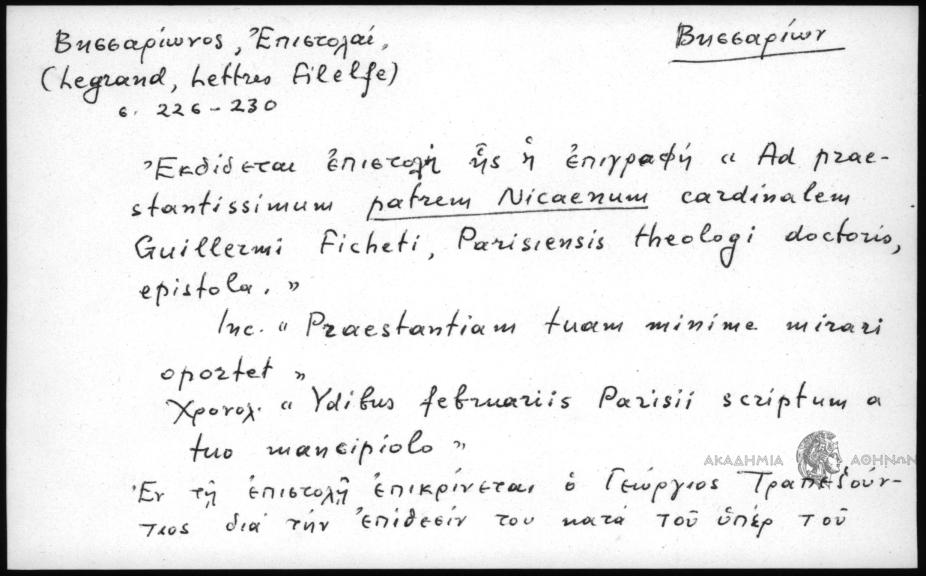 Βησσαρίωνος, Ἐπιστολαί,
Βησσαρίων
(Legrand, Lettres Filelfe)
σ. 226-230
Ἐκδίδεται ἐπιστολὴ ἧς ἡ ἐπιγραφή « Ad prae-
stantissimum patrem Nicaenum cardinalem
Guillermi Ficheti, Parisiensis theologi doctoris,
epistola. »
Inc. « Praestantiam tuam minime mirari
oportet »
Χρονολ. « Ydibus februariis Parisii scriptum a
tuo mancipiolo »
Ἐν τῇ ἐπιστολῇ ἐπικρίνεται ὁ Γεώργιος Τραπεζούν-
τιος διά τήν ἐπίθεσίν του κατά τοῦ ὑπέρ τοῦ
ΑΚΑΔΗΜΙΑ ΑΘΗΝΩΝ